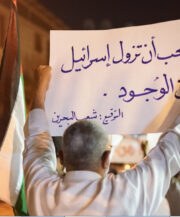 يجب أن تزول إسرائيل
من الوُجود .
التوقيع : شعب البحرين